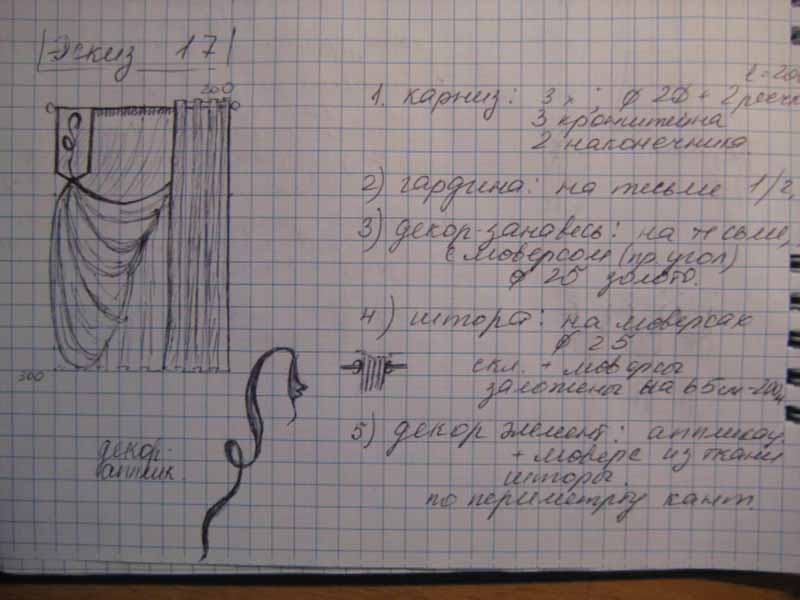 Эскиз 17
200
300
декор.
аплик.
l = 200
1. карниз: 3 х ; ф 20 + 2
3 кронштейна
2 наконечника.
2) гардина: на тесьме 1/2,
3) декор-занавесь: на тесьме,
с люверсом (пр. угол)
ф 25 золото.
4) штора: на люверсах
ф 25
скл. + люверсы
заложены на 65см - 200
5) декор элемент: аппликац
+ люверс из ткани
шторы.
по периметру кант.